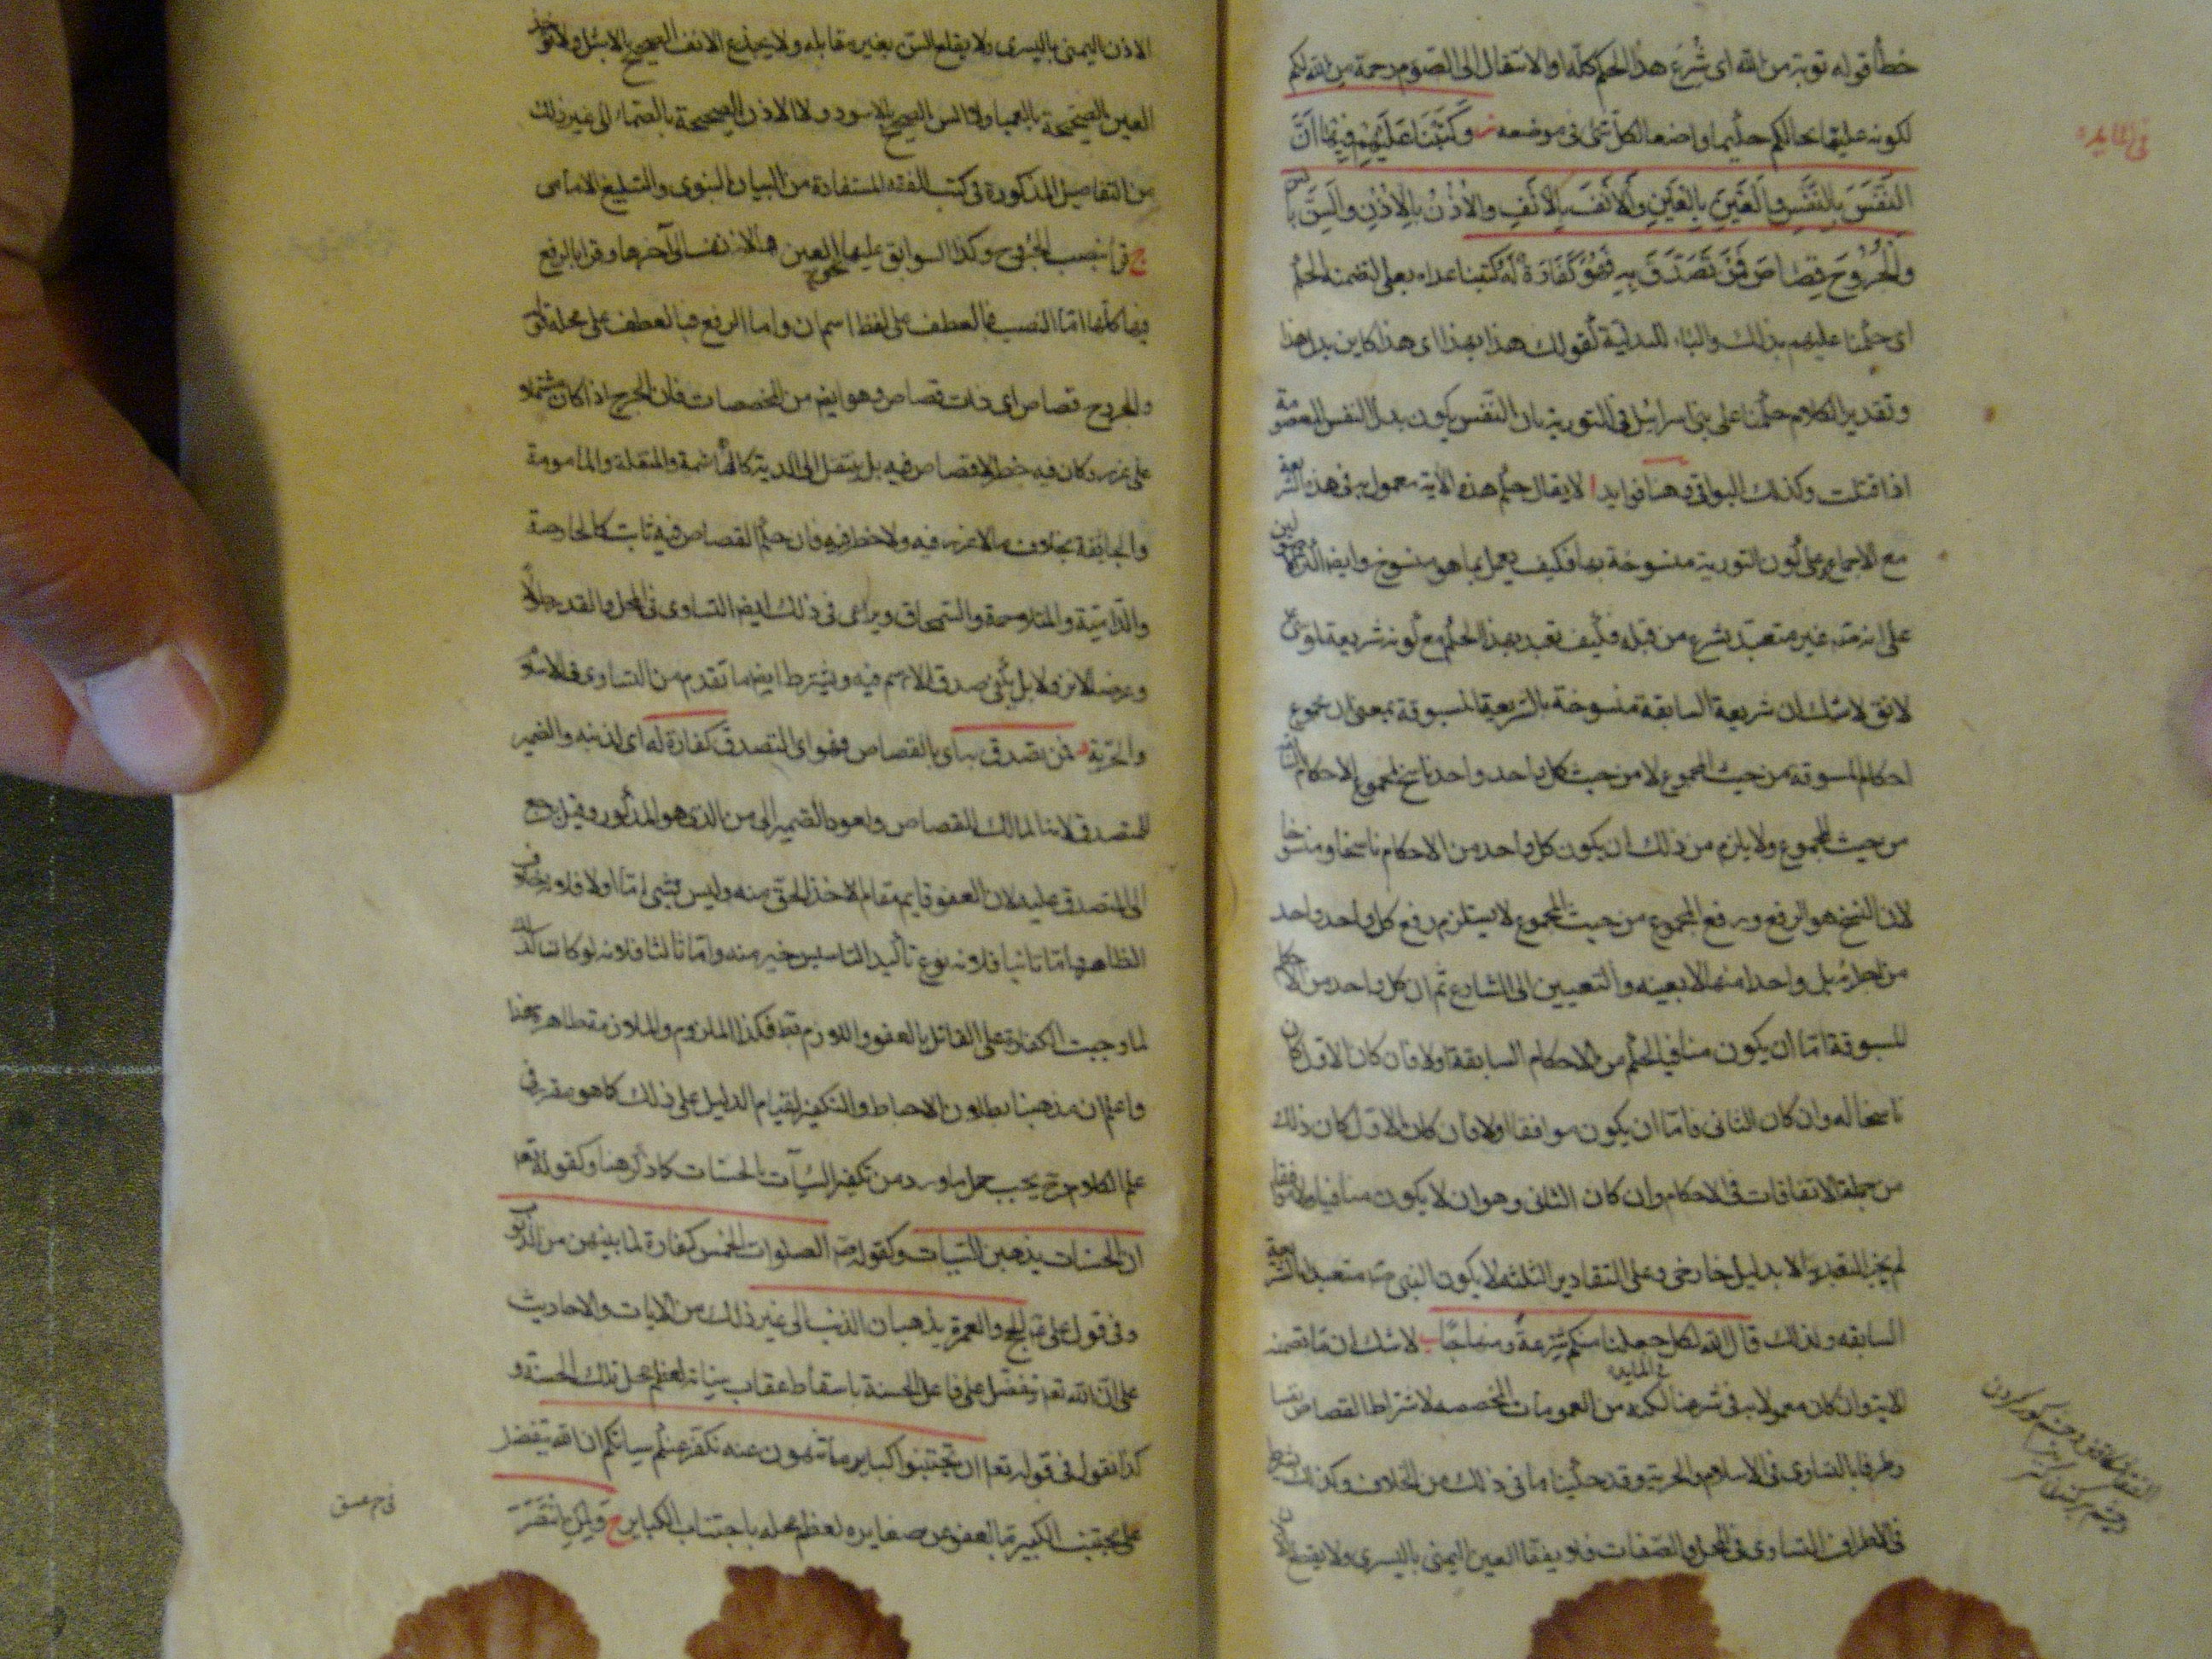 خطأ قوله توبة من الله اى شُرع هذا الحكم كلّه او الانتقال الى الصّوم رحمة من الله لكم
لكونه عليما بحالكم حكيما واضعا لكلّ شئ فى موضعه وَكَتَبْنَا عَلَيْهِمْ فِيهَا أَنَّ
فى المايده
النَّفْسَ بِالنَّفْسِ وَالْعَيْنَ بِالْعَيْنِ وَالْأَنْفَ بِالْأَنْفِ وَالْأُذُنَ بِالْأُذُنِ وَالسِّنَّ بالسن
وَالْجُرُوحَ قِصَاصٌ فَمَنْ تَصَدَّقَ بِهِ فَهُوَ كَفَّارَةٌ لَهُ كتبنا عداه بعلى لتضمنه الحكم
اى حكمنا عليهم بذلك والباء للبدلية كقولك هذا بهذا اى هذا كاين بدل هذا
وتقدير الكلام حكمنا على بنى اسرائيل فى التورية بان النّفس يكون بدل النفس المعصومة
اذا قتلت وكذلك البواقى وهنا فوايد ا لا يقال حكم هذه الاية معمول به فى هذه الشريعة
مع الاجماع على كون التورية منسوخة بها فكيف يعمل بما هو منسوخ وايضا
على انه صّه غير متعبّد بشرع من قبله فكيف تعبد بهذا الحكم مع كونه شريعة
لانا نق لا شك ان شريعة السابقة منسوخة بالشريعة المسبوقة بمعنى ان مجموع
احكام المسبوقة من حيث المجموع لا من حيث كل واحد واحد ناسخ لمجموع الاحكام
من حيث المجموع ولا يلزم من ذلك ان يكون كل واحد من الاحكام ناسخا ومنسوخا
لان النسخ هو الرفع ورفع المجموع من حيث المجموع لا يستلزم رفع كل واحد واحد
من اجزائه بل واحدا منها لا بعينه والتعيين الى الشارع ثم ان كل واحد من الاحكام
المسبوقة امّا ان يكون منافيا لحكم من الاحكام السابقة اولا فان كان الاول كان
ناسخا له وان كان الثانى فامّا ان يكون موافقا اولا فان كان الاول كان ذلك
من جملة الاتفاقات فى الاحكام وان كان الثانى وهو ان لا يكون منافيا ولا موافقا
لم يجز التعبد به الا بدليل خارجى وعلى التقادير الثلثة لا يكون النبى صّه متعبدا بالشريعة
السابقه ولذلك قال الله لكل جعلنا منكم شرعةً ومنهاجًا ب لا شك ان ما تضمنه
فى المايده
الاية وان كان معمولا به فى شرعنا لكنه من العمومات المخصصه لاشتراط القصاص نفسا
وطرفا بالتساوى فى الاسلام والحرية وقد حكينا ما فى ذلك من الخلاف وكذلك يشترط
فى الاطراف التساوى فى المحل والصّفات فلا يفقأ العين اليمنى باليسرى ولا يقطع
الاذن اليمنى باليسرى ولا يقلع السن بغير مقابله ولا يجذع الانف الصحيح بالاشل ولا تؤخذ
العين الصّحيحة بالعمياء ولا السن الصحيح بالاسود ولا الاذن الصحيحة بالصّماء الى غير ذلك
من التفاصيل المذكورة فى كتب الفقه المستفادة من البيان النبوى والتبليغ الامامى
ج قرأ بنصب الجروح وكذا السوابق عليها العين الى آخرها وقرأ بالرفع
فيها كلّها امّا النصب فبالعطف على لفظ اسم ان واما الرفع فبالعطف على محله
والجروح قصاص اى ذات قصاص وهو ايضا من المخصصات فان الجرح اذا كان مشتملا
على غرر وكان فيه خطر لا قصاص فيه بل ينتقل الى الدية كالهاشمة والمنقلة والمأمومة
والجايفة بخلاف ما لا غرر فيه ولا خطر فيه فان حكم القصاص فيه ثابت كالحارصة
والدّامية والمتلاحمة والسّمحاق ويراعى فى ذلك ايضا التساوى فى المحل والقدر طولاً
وعرضا لا نزولا بل يكفى صدق الاسم فيه ويشترط ايضا ما تقدم من التساوى فى الاسلام
والحرّية د فمن تصدق به اى بالقصاص فهو اى التصدق كفارة له اى لذنبه والضمير
للمتصدق لانه المالك للقصاص ولعود الضمير الى من الذى هو المذكور وقيل يرجع
الى المتصدق عليه لان العفو قايم مقام الاخذ الحق منه وليس بشئ امّا اولا فلانه خلاف
الظاهر وامّا ثانيا فلانه نوع تأكيد التاسيس خير منه وامّا ثالثا فلانه لو كان كذلك
لما وجبت الكفارة على القاتل بالعفو واللازم بط فكذا الملزوم والملازمة ظاهرة هذا
واعلم ان مذهبنا بطلان الاحباط والتكفير لقيام الدليل على ذلك كما هو مقرر فى
علم الكلام يجب حمل ما ورد من تكفير السيآت بالحسنات كما ذكر هنا وكقوله تعه
ان الحسنات يذهبن السيّات وكقوله صّه الصلوات الخمس كفارة لما بينهن من الذنوب
وفى قول على عّه الحج والعمرة يذهبان الذنب الى غير ذلك من الايات والاحاديث
على ان الله تعه تفضّل على فاعل الحسنة باسقاط عقاب سيئاته لعظم محل تلك الحسنة و
كذا نقول فى قوله تعه ان تجتنبوا كباير ما تنهون عنه نكفر عنكم سيأتكم ان الله يتفضل
على مجتنب الكبيرة بالعفو عن صغايره لعظم محله باجتناب الكباير ح وَلَمَنِ انْتَصَرَ
فى حم عسق